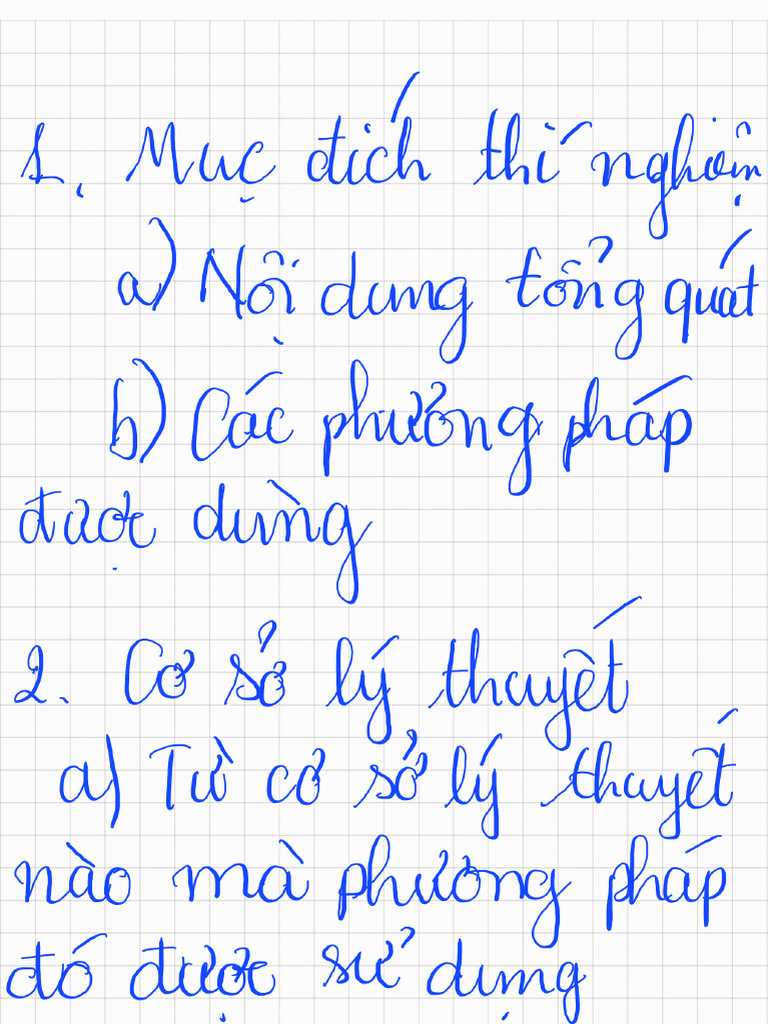 1. Mục đích thí nghiệm
a) Nội dung tổng quát
b) Các phương pháp
được dùng
2. Cơ sở lý thuyết
a) Từ cơ sở lý thuyết
nào mà phương pháp
đó được sử dụng